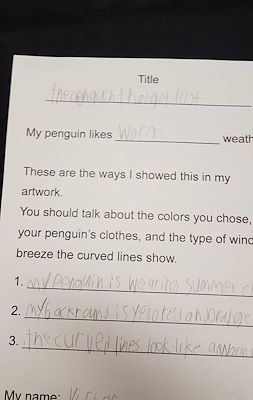 Title
the penguin that got lost
My penguin likes worm weath
These are the ways I showed this in my
artwork.
You should talk about the colors you chose,
your penguin's clothes, and the type of wind
breeze the curved lines show.
1. my penguin is wearing summer c
2. my backround is yello red and orange
3. the curved lines look like a
My name: